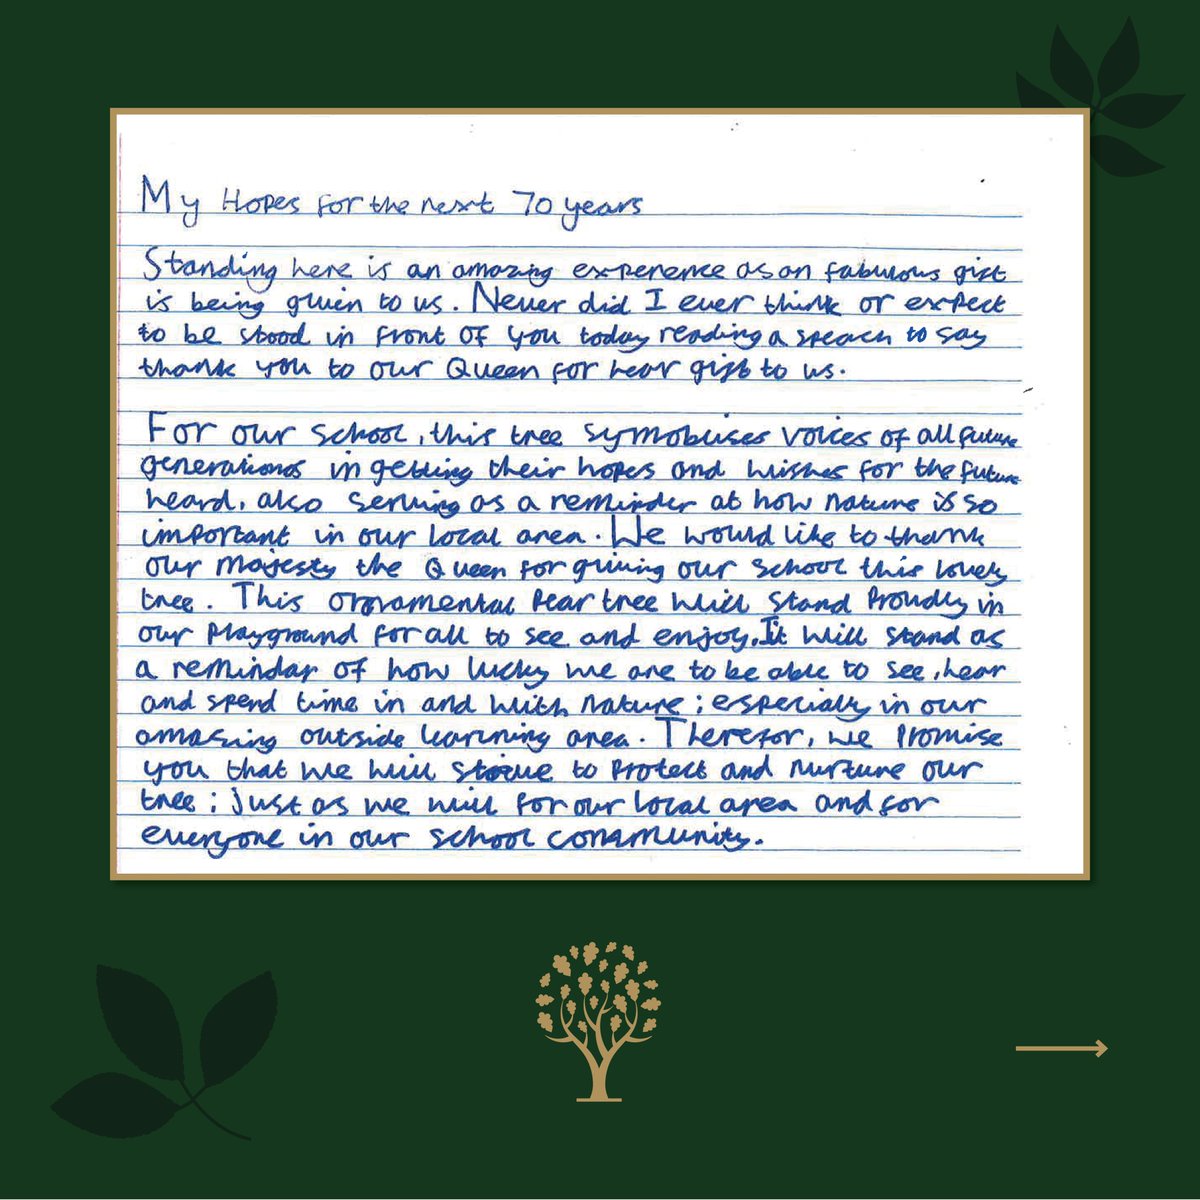 My Hopes for the next 70 years
Standing here is an amazing experence as an fabulous gift
is being given to us. Never did I ever think or expect
to be stood in front of you today reading a speach to say
thank you to our Queen for hear gift to us.
For our school, this tree symobuises voices of all future
generationas in getting their hopes and wishes for the future
heard, also serving as a reminder at how nature is so
important in our local area. We would like to thank
our majesty the Queen for giving our school this lovely
tree. This ornamental Pear tree will stand Proudly in
our Playground for all to see and enjoy. It will stand as
a remindar of how lucky we are to be able to see, hear
and spend time in and with nature; especially in our
amazing outside learning area. Therefor, we Promise
you that we will strive to Protect and nurture our
tree; just as we will for our local area and for
everyone in our school community.